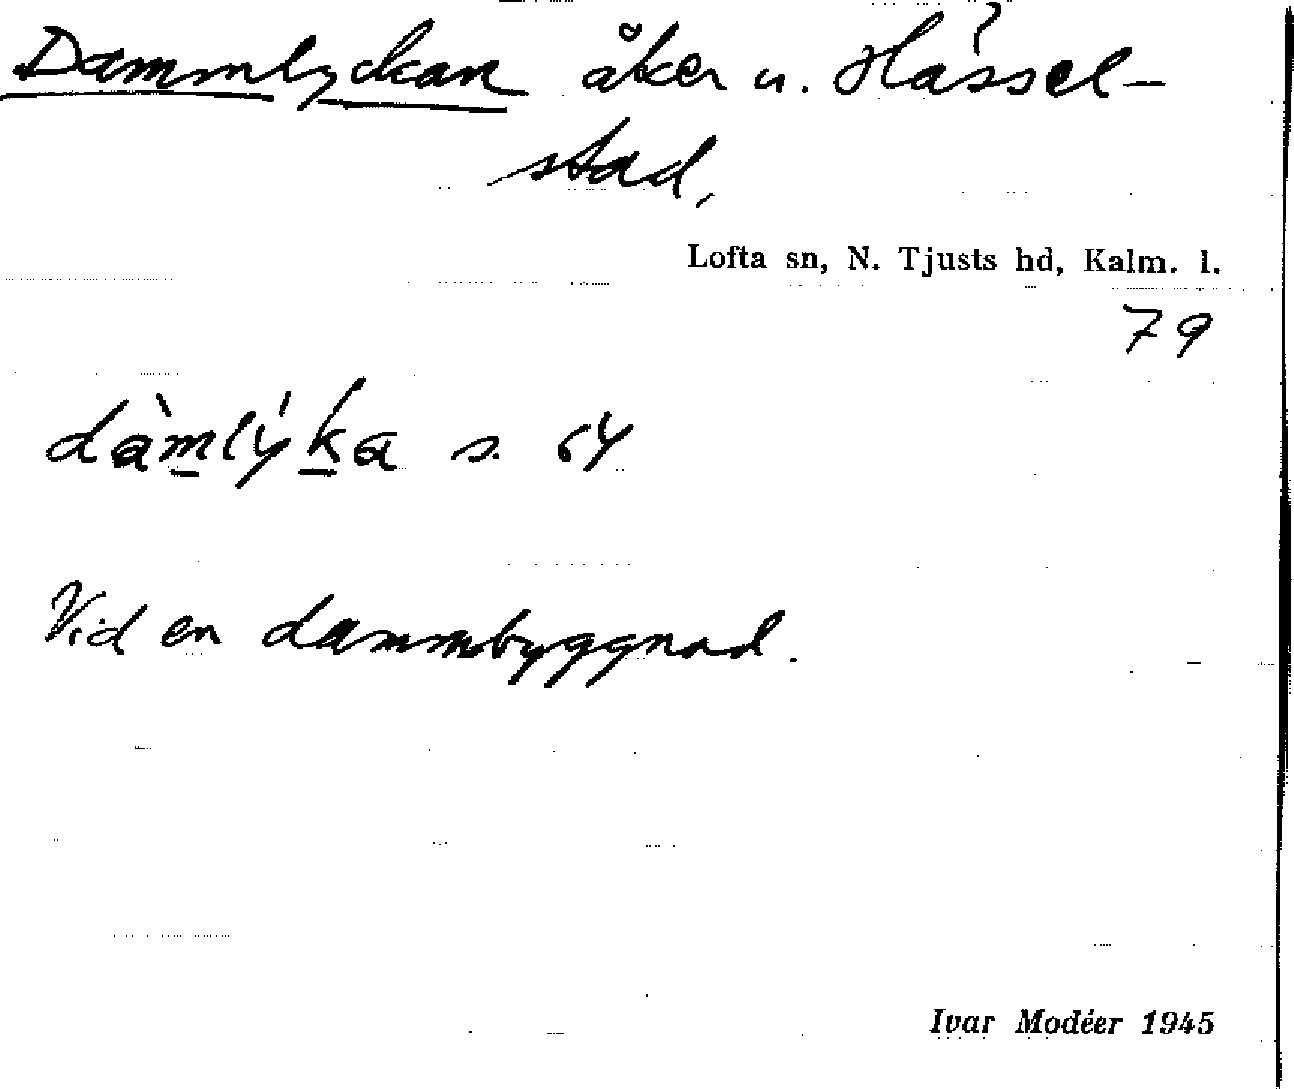 Dammlyckan åker u. Hässel-
stad,
Lofta sn, N. Tjusts hd, Kalm. l.
79
dàmlýka s. 64
Vid en dammbyggnad.
Ivar Modéer 1945